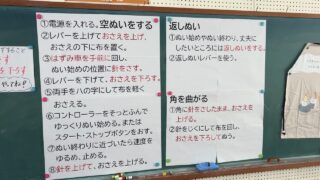 ①電源を入れる。空ぬいをする
②レバーを上げておさえを上げ、
おさえの下に布を置く。
③はずみ車を手前に回し、
ぬい始めの位置に針をさす。
④レバーを下げて、おさえを下ろす。
⑤両手をハの字にして布を軽く
おさえる。
⑥コントローラーをそっとふんで
ゆっくりぬい始める。または
スタート・ストップボタンをおす。
⑦ぬい終わりに近づいたら速度を
ゆるめ、止める。
⑧針を上げて、おさえを上げる。
返しぬい
①ぬい始めやぬい終わり、丈夫に
したいところには返しぬいをする。
②返しぬいレバーを使う。
角を曲がる
①角に針をさしたまま、おさえを
上げる。
②針をじくにして布を回し、
おさえを下ろしてぬう。